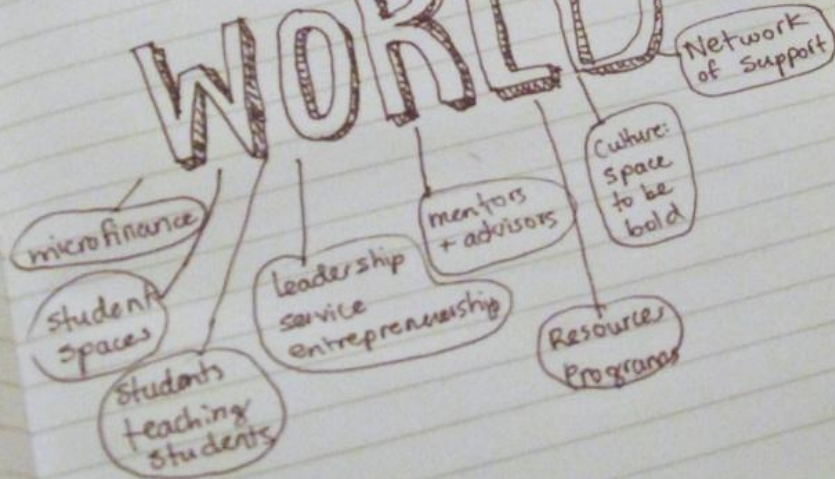 WORLD
Network
of support
Culture:
space
to be
bold
mentors
+ advisors
microfinance
leadership
service
entrepreneurship
student
spaces
Resources
Programs
students
teaching
students